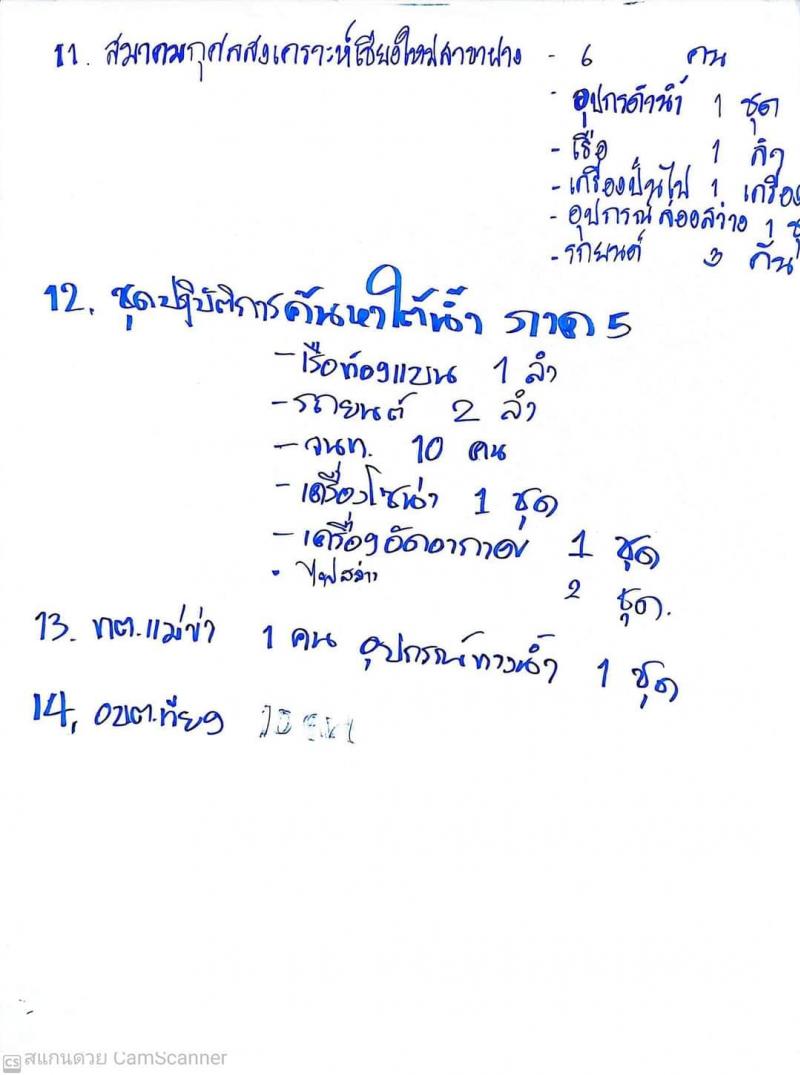 11. สมาคมกุศลสงเคราะห์เชียงใหม่สาขาฝาง - 6 คน
- อุปกรดำน้ำ 1 ชุด
- เรือ 1 ลำ
- เครื่องปั่นไฟ 1 เครื่อง
- อุปกรณ์ส่องสว่าง 1 ชุ
- รถยนต์ 3 คัน
12. ชุดปฏิบัติการค้นหาใต้น้ำ ภาค 5
- เรือท้องแบน 1 ลำ
- รถยนต์ 2 ลำ
- จนท. 10 คน
- เครื่องโซน่า 1 ชุด
- เครื่องอัดอากาศ 1 ชุด
• ไฟสว่าง 2 ชุด.
13. ทต.แม่ข่า 1 คน อุปกรณ์ทางน้ำ 1 ชุด
14. อบต.เวียง 10
CS สแกนด้วย CamScanner